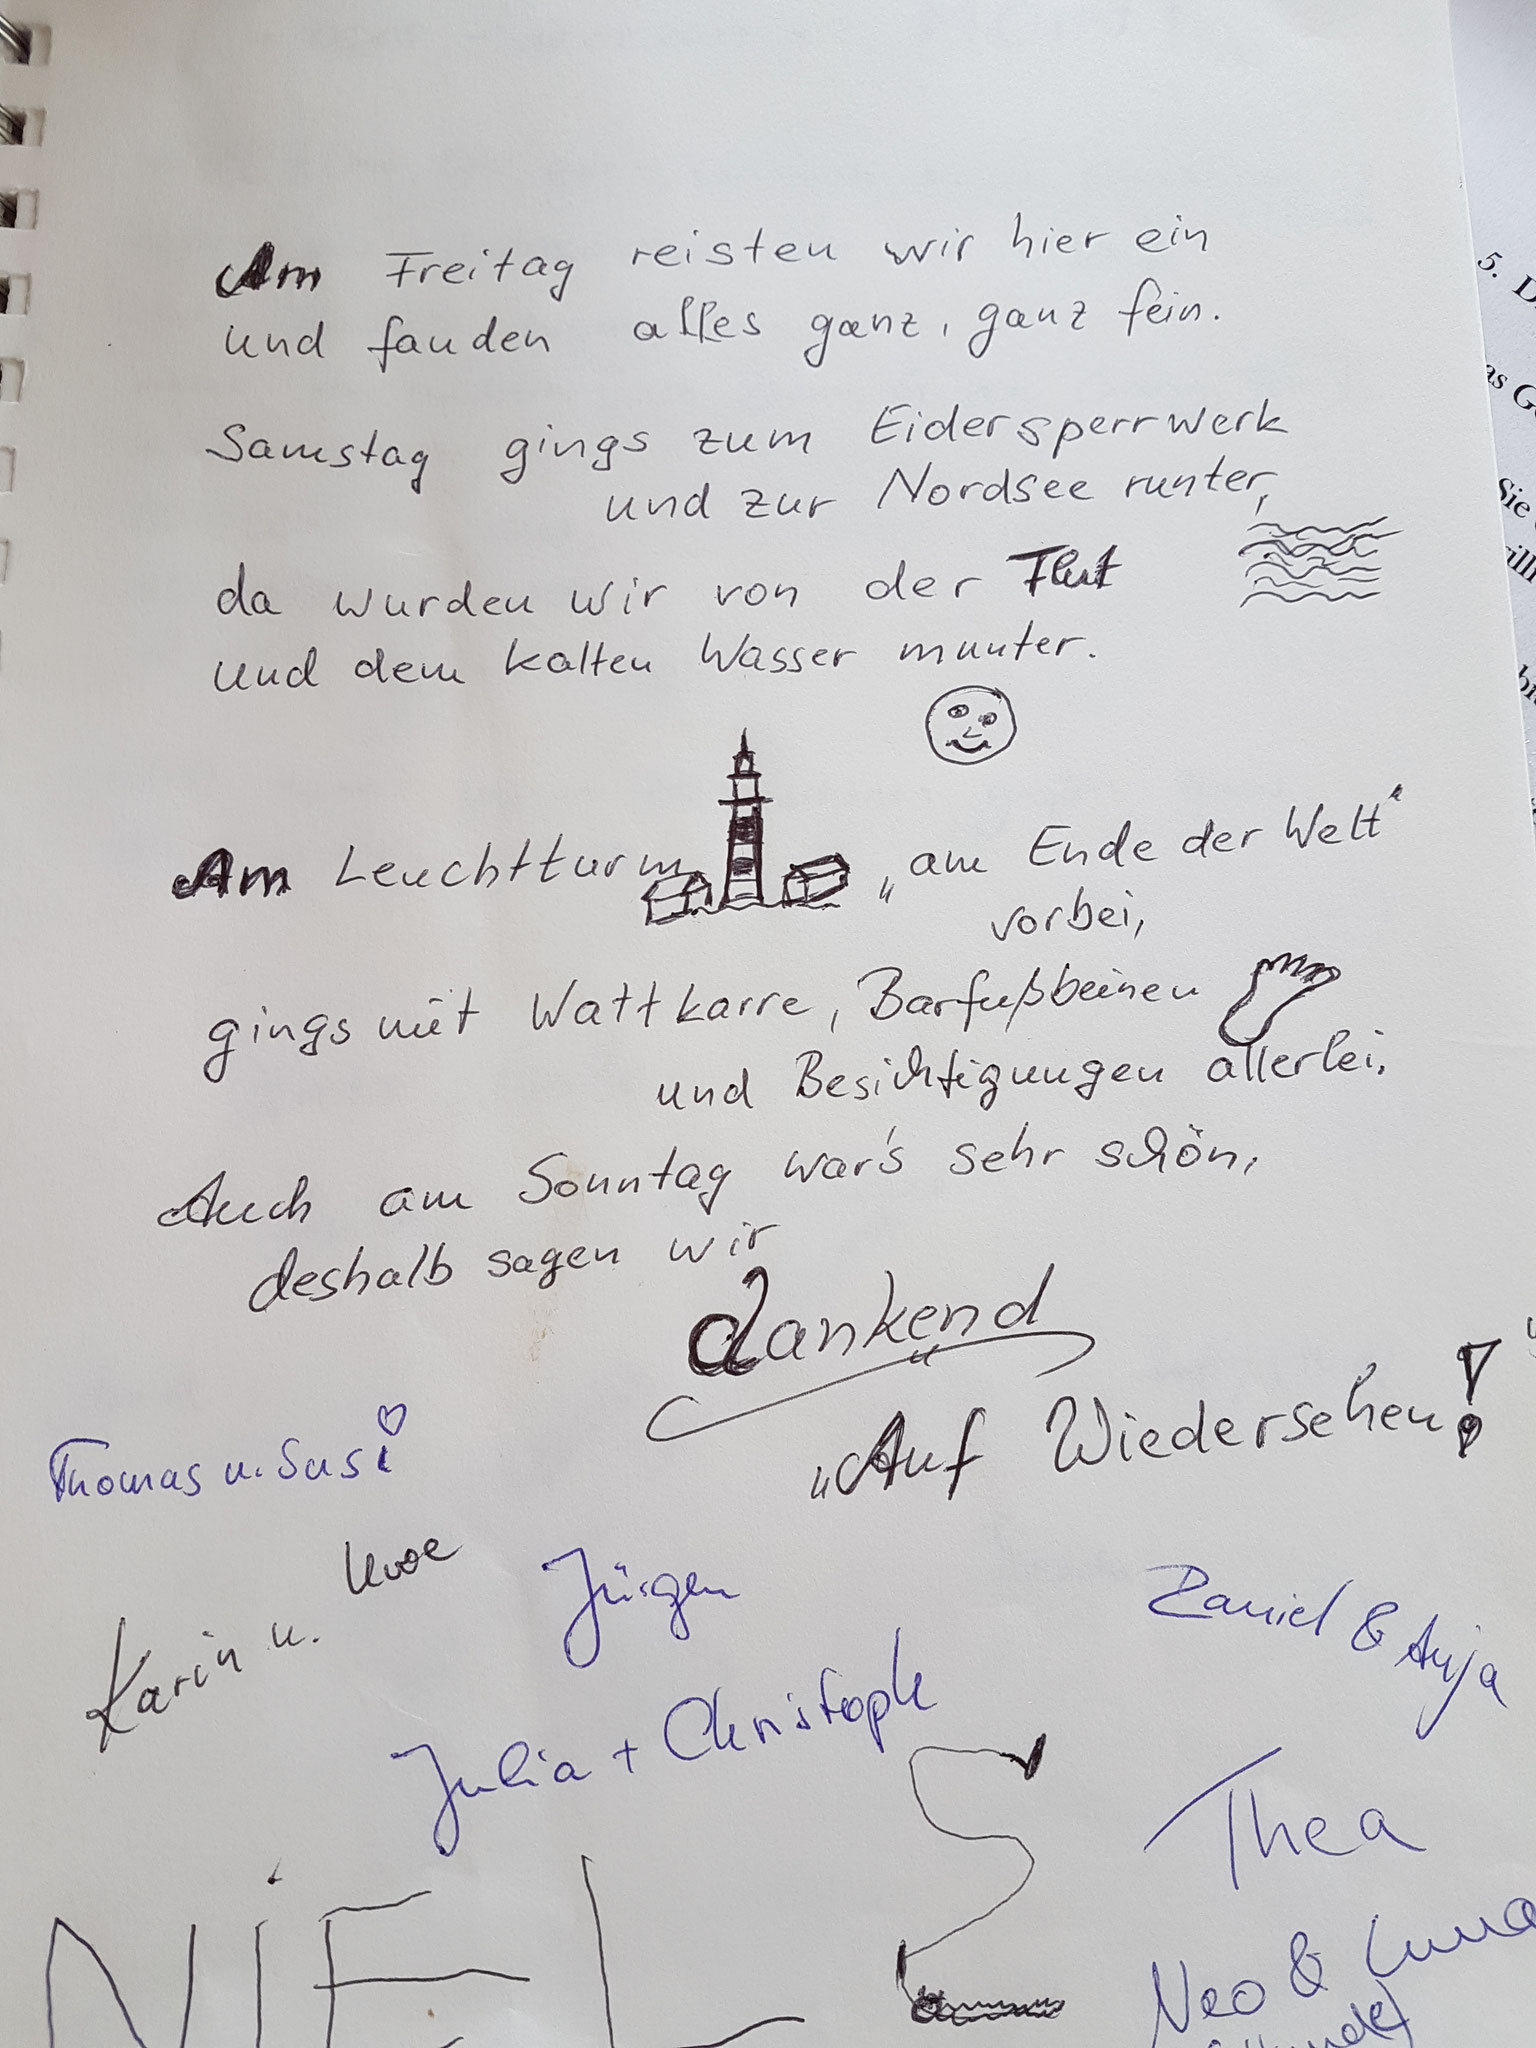 Am Freitag reisten wir hier ein
und fanden alles ganz, ganz fein.
Samstag gings zum Eidersperrwerk
und zur Nordsee runter,
da wurden wir von der Flut
und dem kalten Wasser munter.
Am Leuchtturm „am Ende der Welt“
vorbei,
gings mit Wattkarre, Barfußbeinen
und Besichtigungen allerlei.
Auch am Sonntag war's sehr schön,
deshalb sagen wir
dankend
„Auf Wiedersehen!
Thomas u. Susi
Karin u. Uwe
Jürgen
Daniel & Anja
Julia + Christoph
Thea
NiELS
Neo & Luna
5.
as
Sie